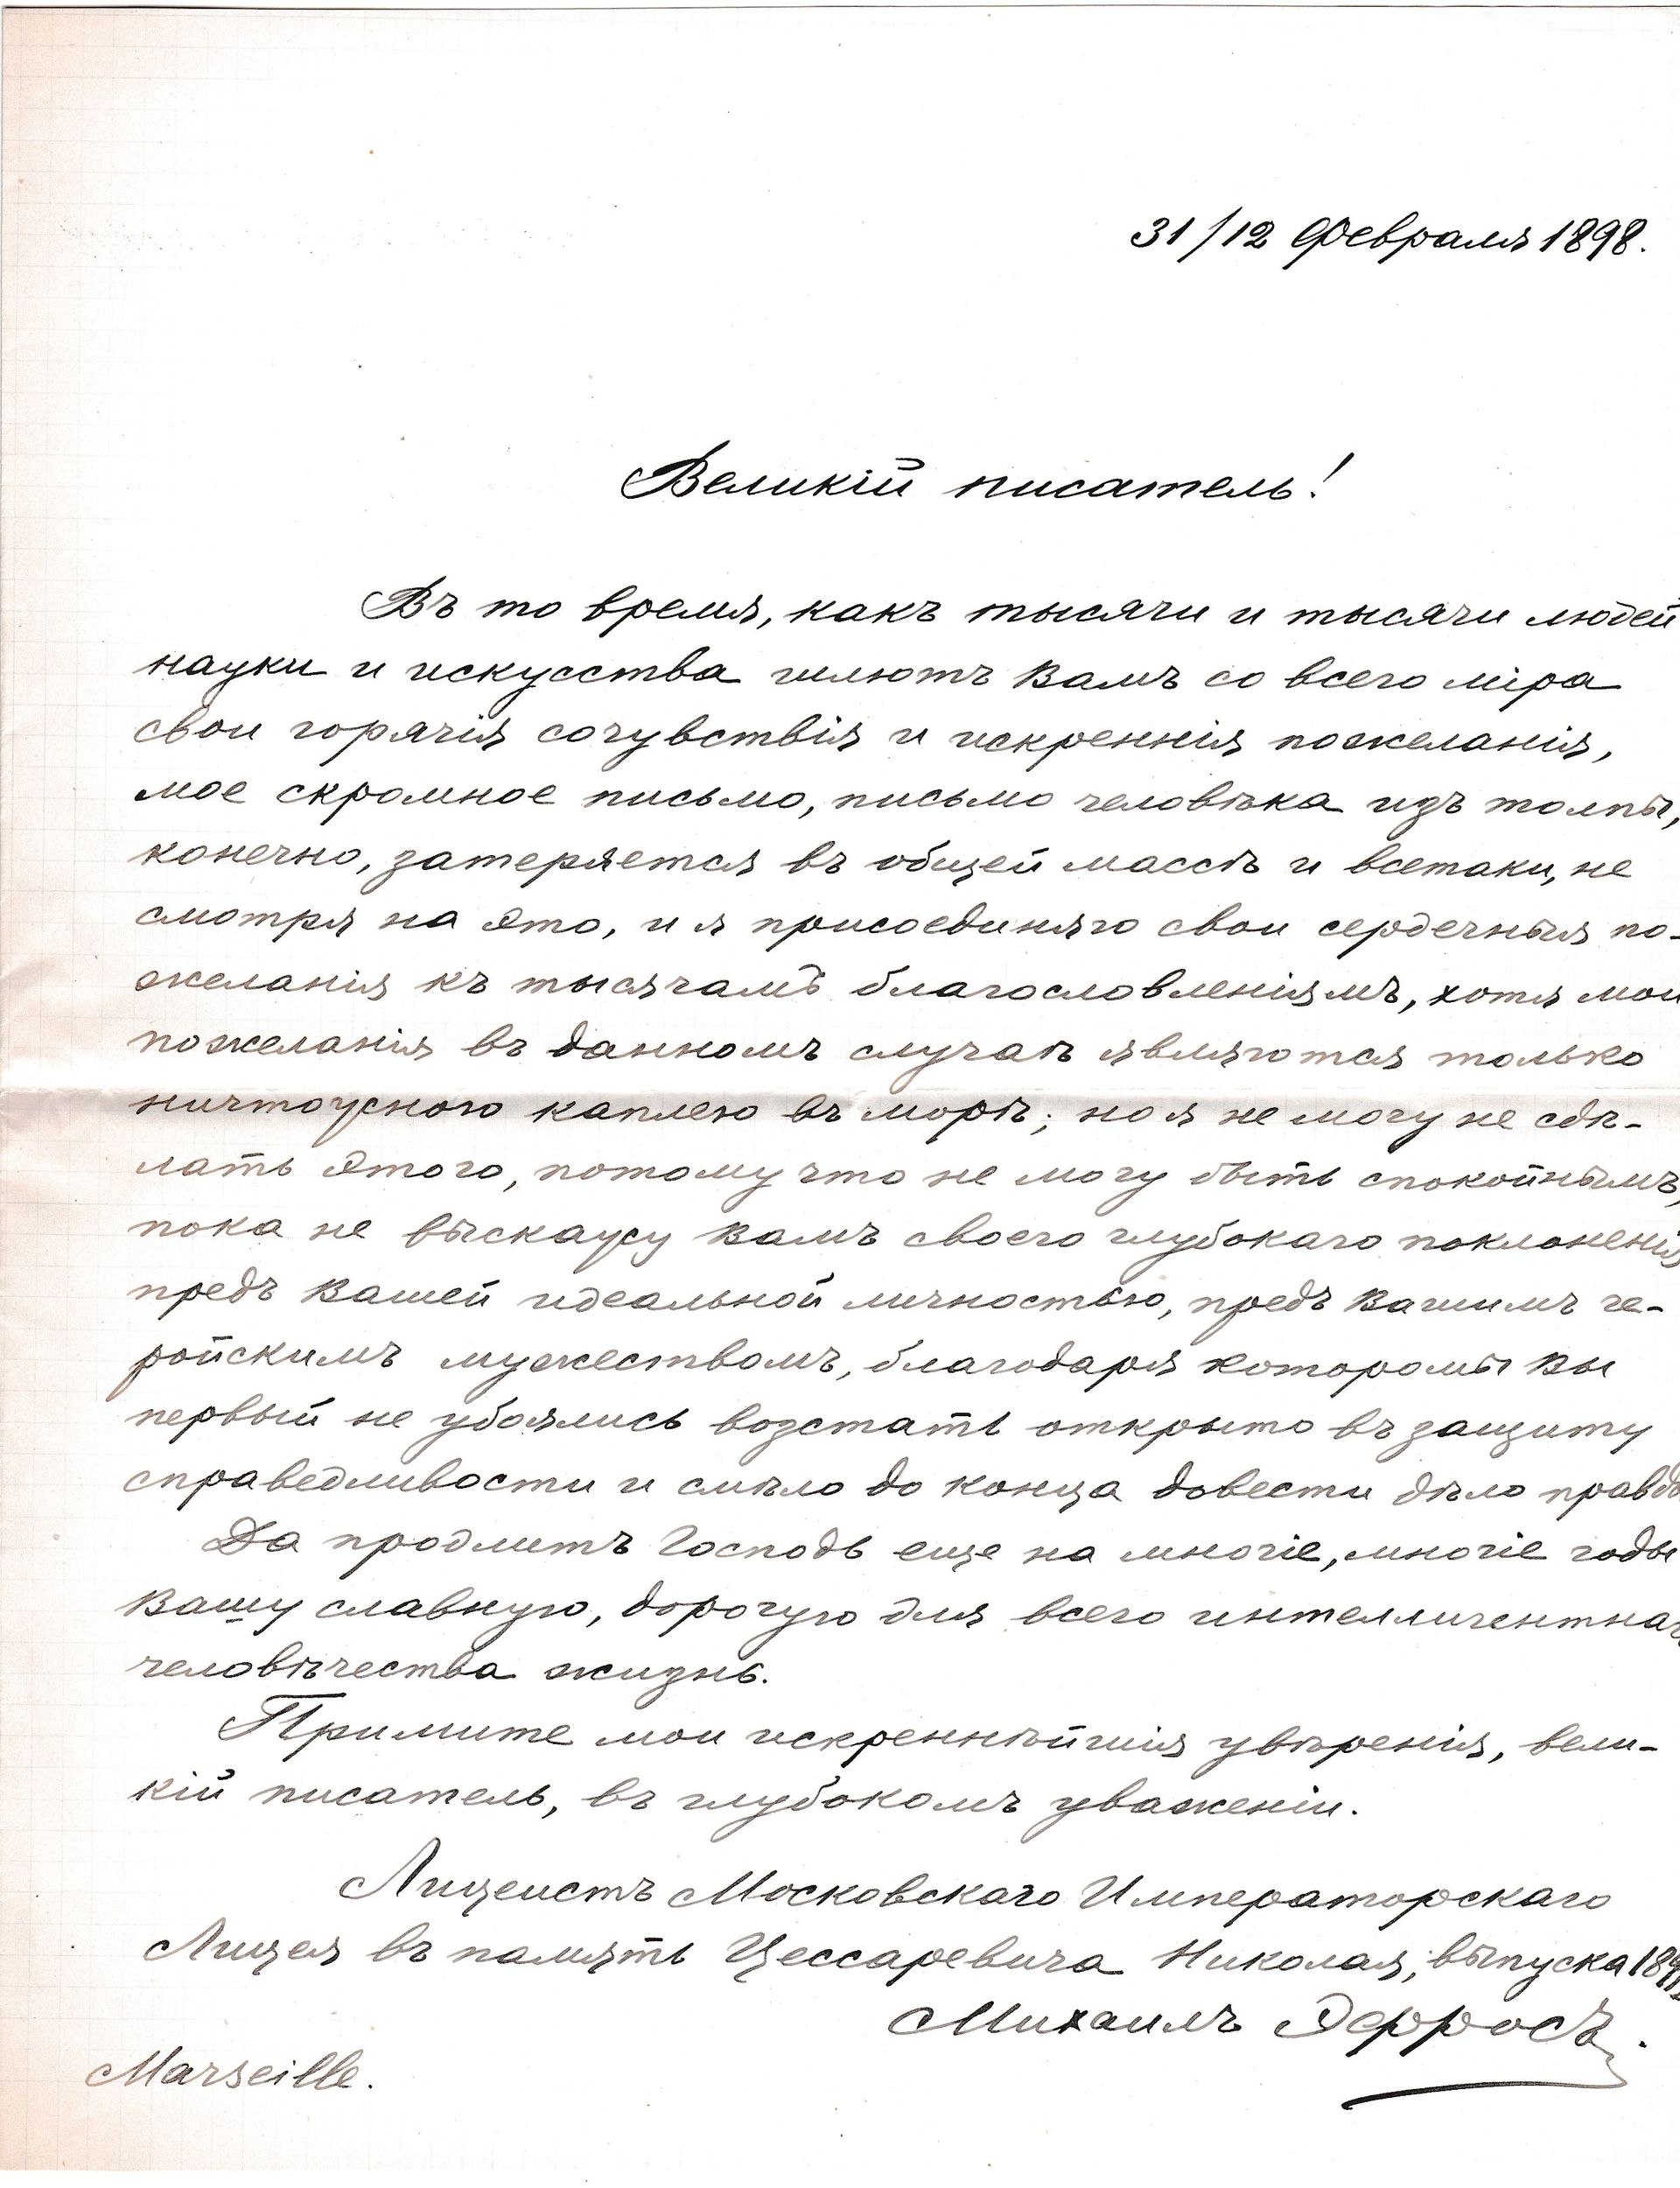 31/12 Февраля 1898.
Великій писатель!
Въ то время, какъ тысячи и тысячи людей
науки и искусства шлютъ Вамъ со всего міра
свои горячія сочувствія и искреннія пожеланія,
мое скромное письмо, письмо человѣка изъ толпы,
конечно, затеряется въ общей массѣ и всетаки, не
смотря на это, и я присоединяю свои сердечныя по-
желанія къ тысячамъ благословленіямъ, хотя мои
пожеланія въ данномъ случаѣ являются только
ничтожною каплею въ морѣ; но я не могу не сдѣ-
лать этого, потому что не могу быть спокойнымъ,
пока не выскажу Вамъ своего глубокаго поклоненія
предъ Вашей идеальной личностью, предъ Вашимъ ге-
ройскимъ мужествомъ, благодаря которомы Вы
первый не убоялись возстать открыто въ защиту
справедливости и смѣло до конца довести дѣло правды
Да продлитъ Господь еще на многіе, многіе годы
Вашу славную, дорогую для всего интеллигентнаго
человѣчества жизнь.
Примите мои искреннѣйшія увѣренія, вели-
кій писатель, въ глубокомъ уваженіи.
Лицеистъ Московскаго Императорскаго
Лицея въ память Цессаревича Николая, выпуска
Михаилъ Эфросъ.
Marseille.